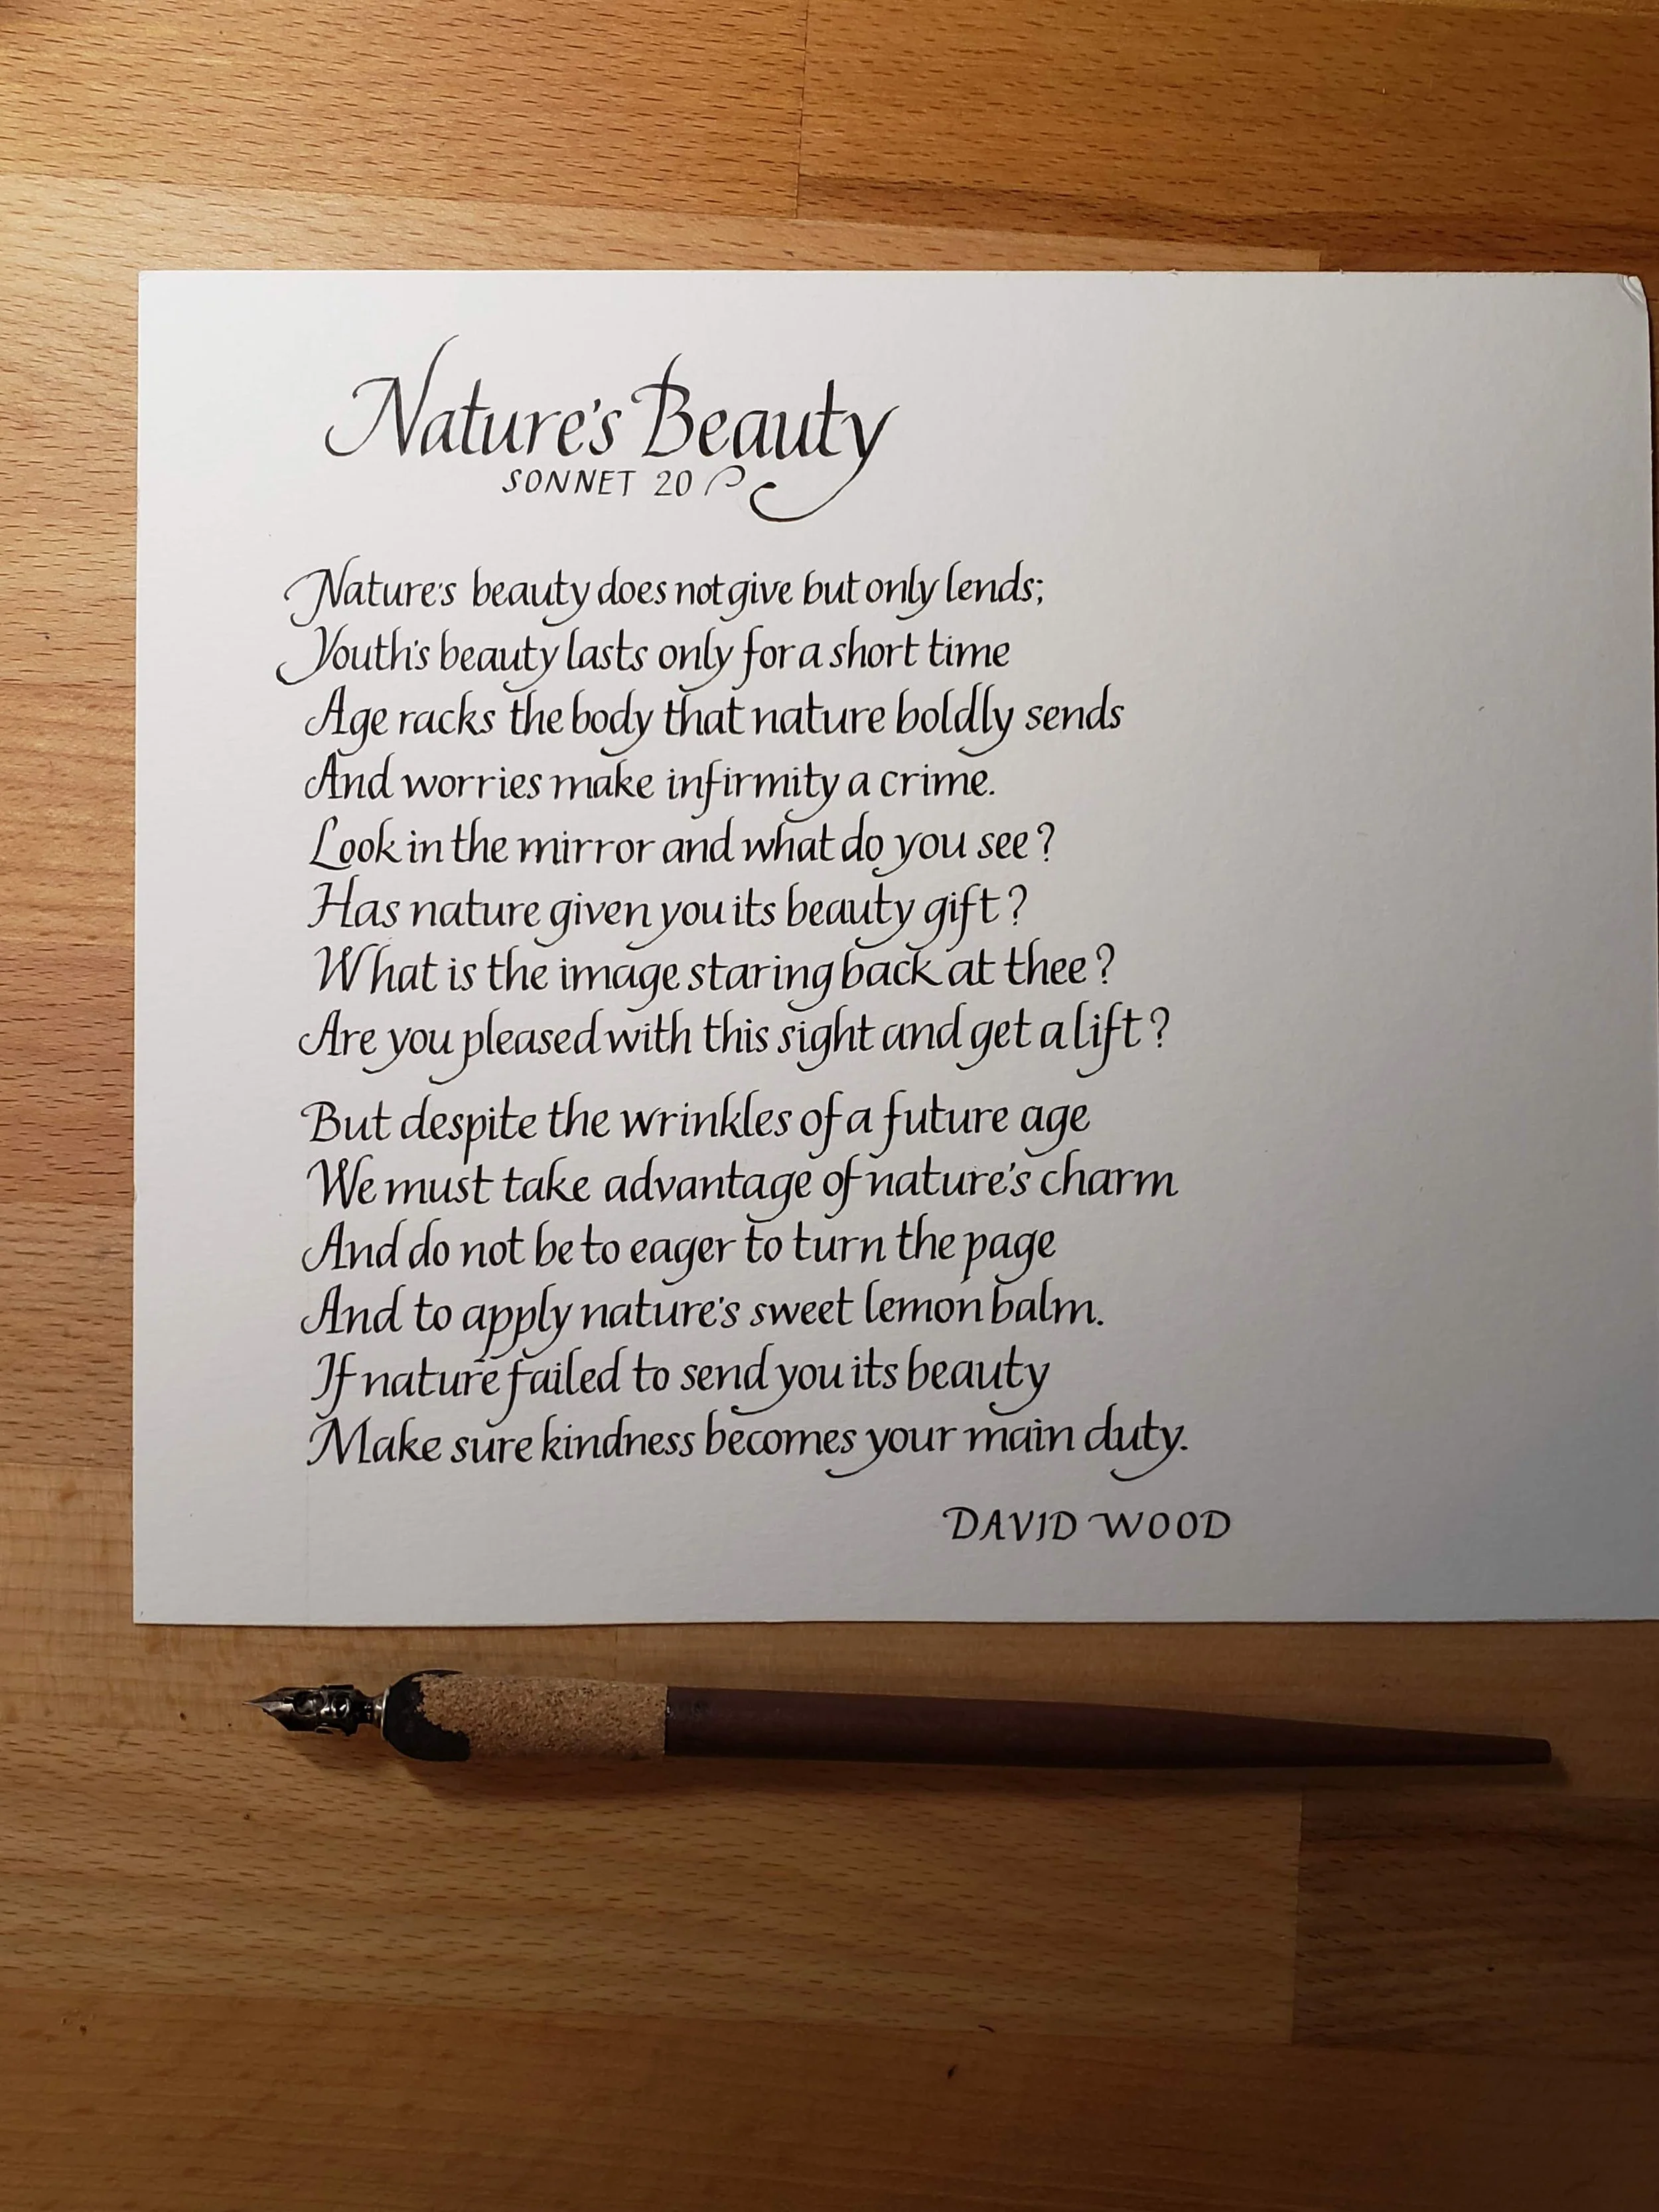 Nature's Beauty
SONNET 20
Nature's beauty does not give but only lends;
Youth's beauty lasts only for a short time
Age racks the body that nature boldly sends
And worries make infirmity a crime.
Look in the mirror and what do you see?
Has nature given you its beauty gift?
What is the image staring back at thee?
Are you pleased with this sight and get a lift?
But despite the wrinkles of a future age
We must take advantage of nature's charm
And do not be to eager to turn the page
And to apply nature's sweet lemon balm.
If nature failed to send you its beauty
Make sure kindness becomes your main duty.
DAVID WOOD